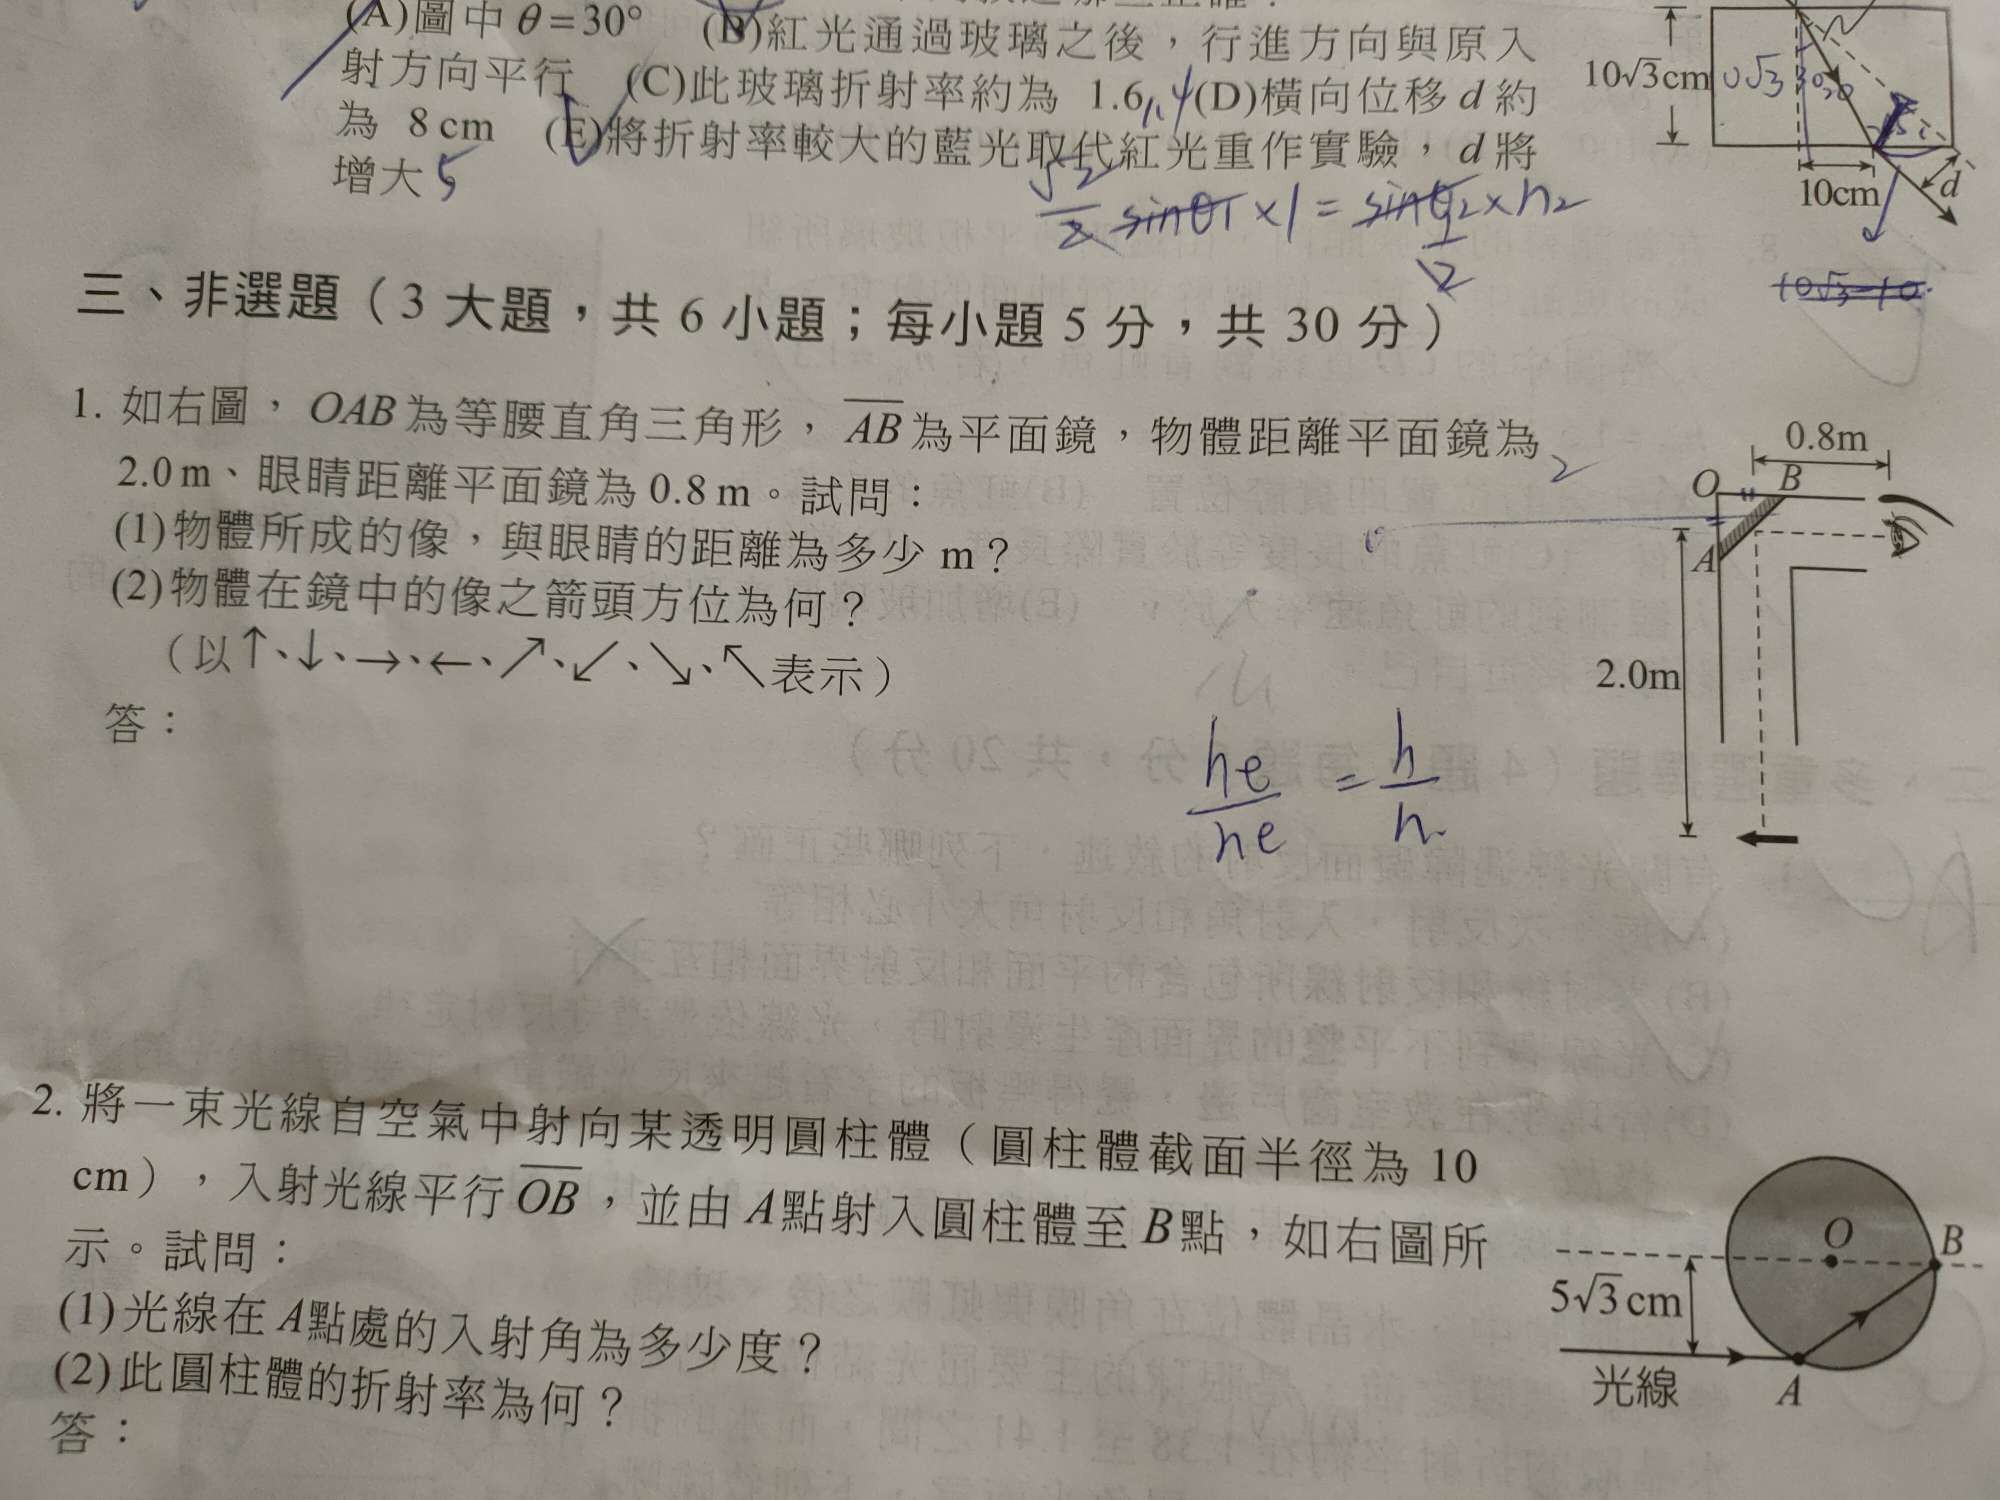 (A)圖中 θ=30° (B)紅光通過玻璃之後，行進方向與原入
射方向平行 (C)此玻璃折射率約為 1.6 1.4 (D)橫向位移 d 約
為 8 cm (E)將折射率較大的藍光取代紅光重作實驗，d 將
增大
10√3cm
10cm
d
√2/2 sinθ1 ×1 = sinθ2 × n2
1/2
10√3-10
三、非選題（3 大題，共 6 小題；每小題 5 分，共 30 分）
1. 如右圖，OAB為等腰直角三角形，AB為平面鏡，物體距離平面鏡為
2.0 m、眼睛距離平面鏡為 0.8 m。試問：
(1)物體所成的像，與眼睛的距離為多少 m？
(2)物體在鏡中的像之箭頭方位為何？
（以↑、↓、→、←、↗、↙、↘、↖表示）
答：
0.8m
O
B
A
2.0m
he/ne = h/n
2. 將一束光線自空氣中射向某透明圓柱體（圓柱體截面半徑為 10
cm），入射光線平行OB，並由 A點射入圓柱體至 B點，如右圖所
示。試問：
(1)光線在 A點處的入射角為多少度？
(2)此圓柱體的折射率為何？
答：
O
B
5√3cm
光線
A